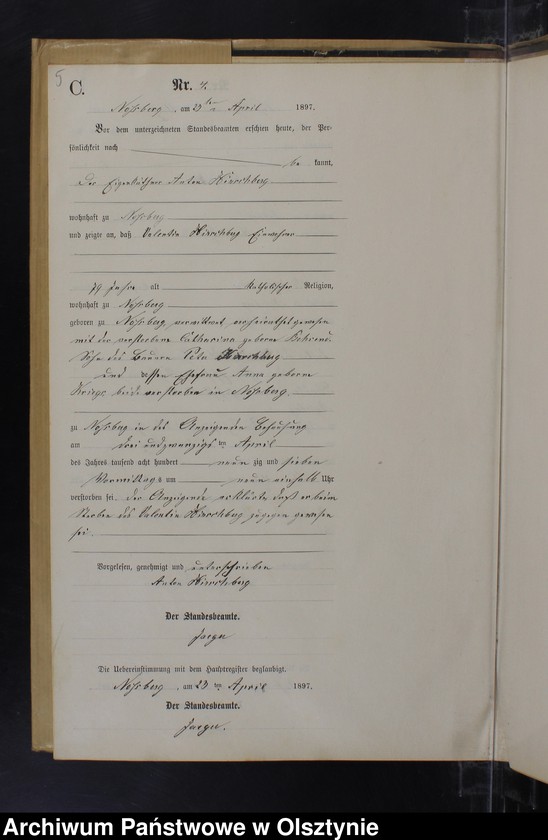 5
C.
Nr. 4.
Nossberg, am 23ten April 1897.
Vor dem unterzeichneten Standesbeamten erschien heute, der Per-
sönlichkeit nach
be kannt,
der Eigenkäthner Anton Hirschberg
wohnhaft zu Nossberg
und zeigte an, daß Valentin Hirschberg Einwohner
79 Jahre alt Katholischer Religion,
wohnhaft zu Nossberg
geboren zu Nossberg, verwittwet verheirathet gewesen
mit der verstorbenen Catharina geborene
Sohn des Bauern Peter Hirschberg
und dessen Ehefrau Anna geborene
beide verstorben in Nossberg.
zu Nossberg in des Anzeigenden Behausung
am drei und zwanzigsten April
des Jahres tausend acht hundert neun zig und sieben
Vormittags um neun einhalb Uhr
verstorben sei. Der Anzeigende erklärte daß er beim
Sterben des Valentin Hirschberg zugegen gewesen
sei.
Vorgelesen, genehmigt und unterschrieben
Anton Hirschberg
Der Standesbeamte.
Die Uebereinstimmung mit dem Hauptregister beglaubigt.
Nossberg, am 23ten April 1897.
Der Standesbeamte.
Archiwum Państwowe w Olsztynie